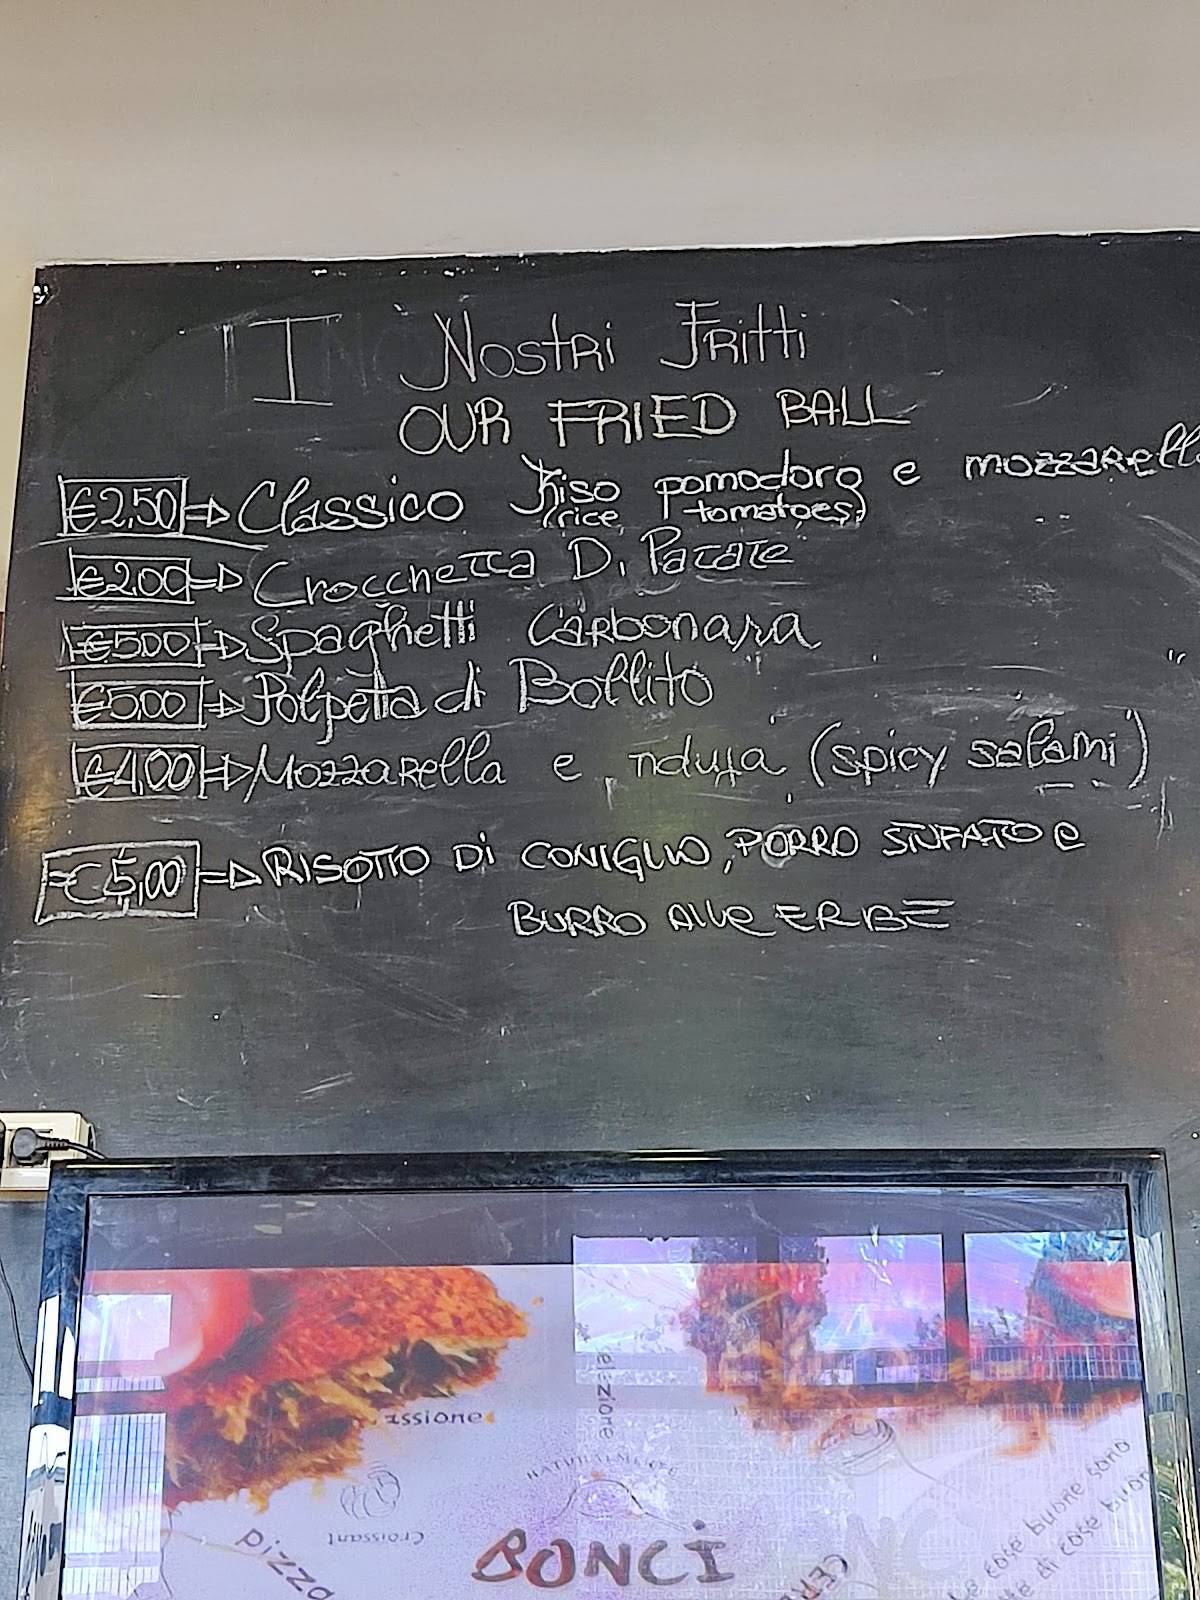 I Nostri Fritti
OUR FRIED BALL
€2,50 ⇒ Classico Riso pomodoro e mozzarella
(rice, tomatoes)
€2,00 ⇒ Crocchetta Di Patate
€5,00 ⇒ Spaghetti Carbonara
€5,00 ⇒ Polpetta di Bollito
€4,00 ⇒ Mozzarella e nduja (spicy salami)
€5,00 ⇒ RISOTTO Di CONIGLIO, PORRO STUFATO e
BURRO Alle ERBE
assione
NATURALMENTE
Croissant
pizza
BONCI
cose buone sono
di cose buon